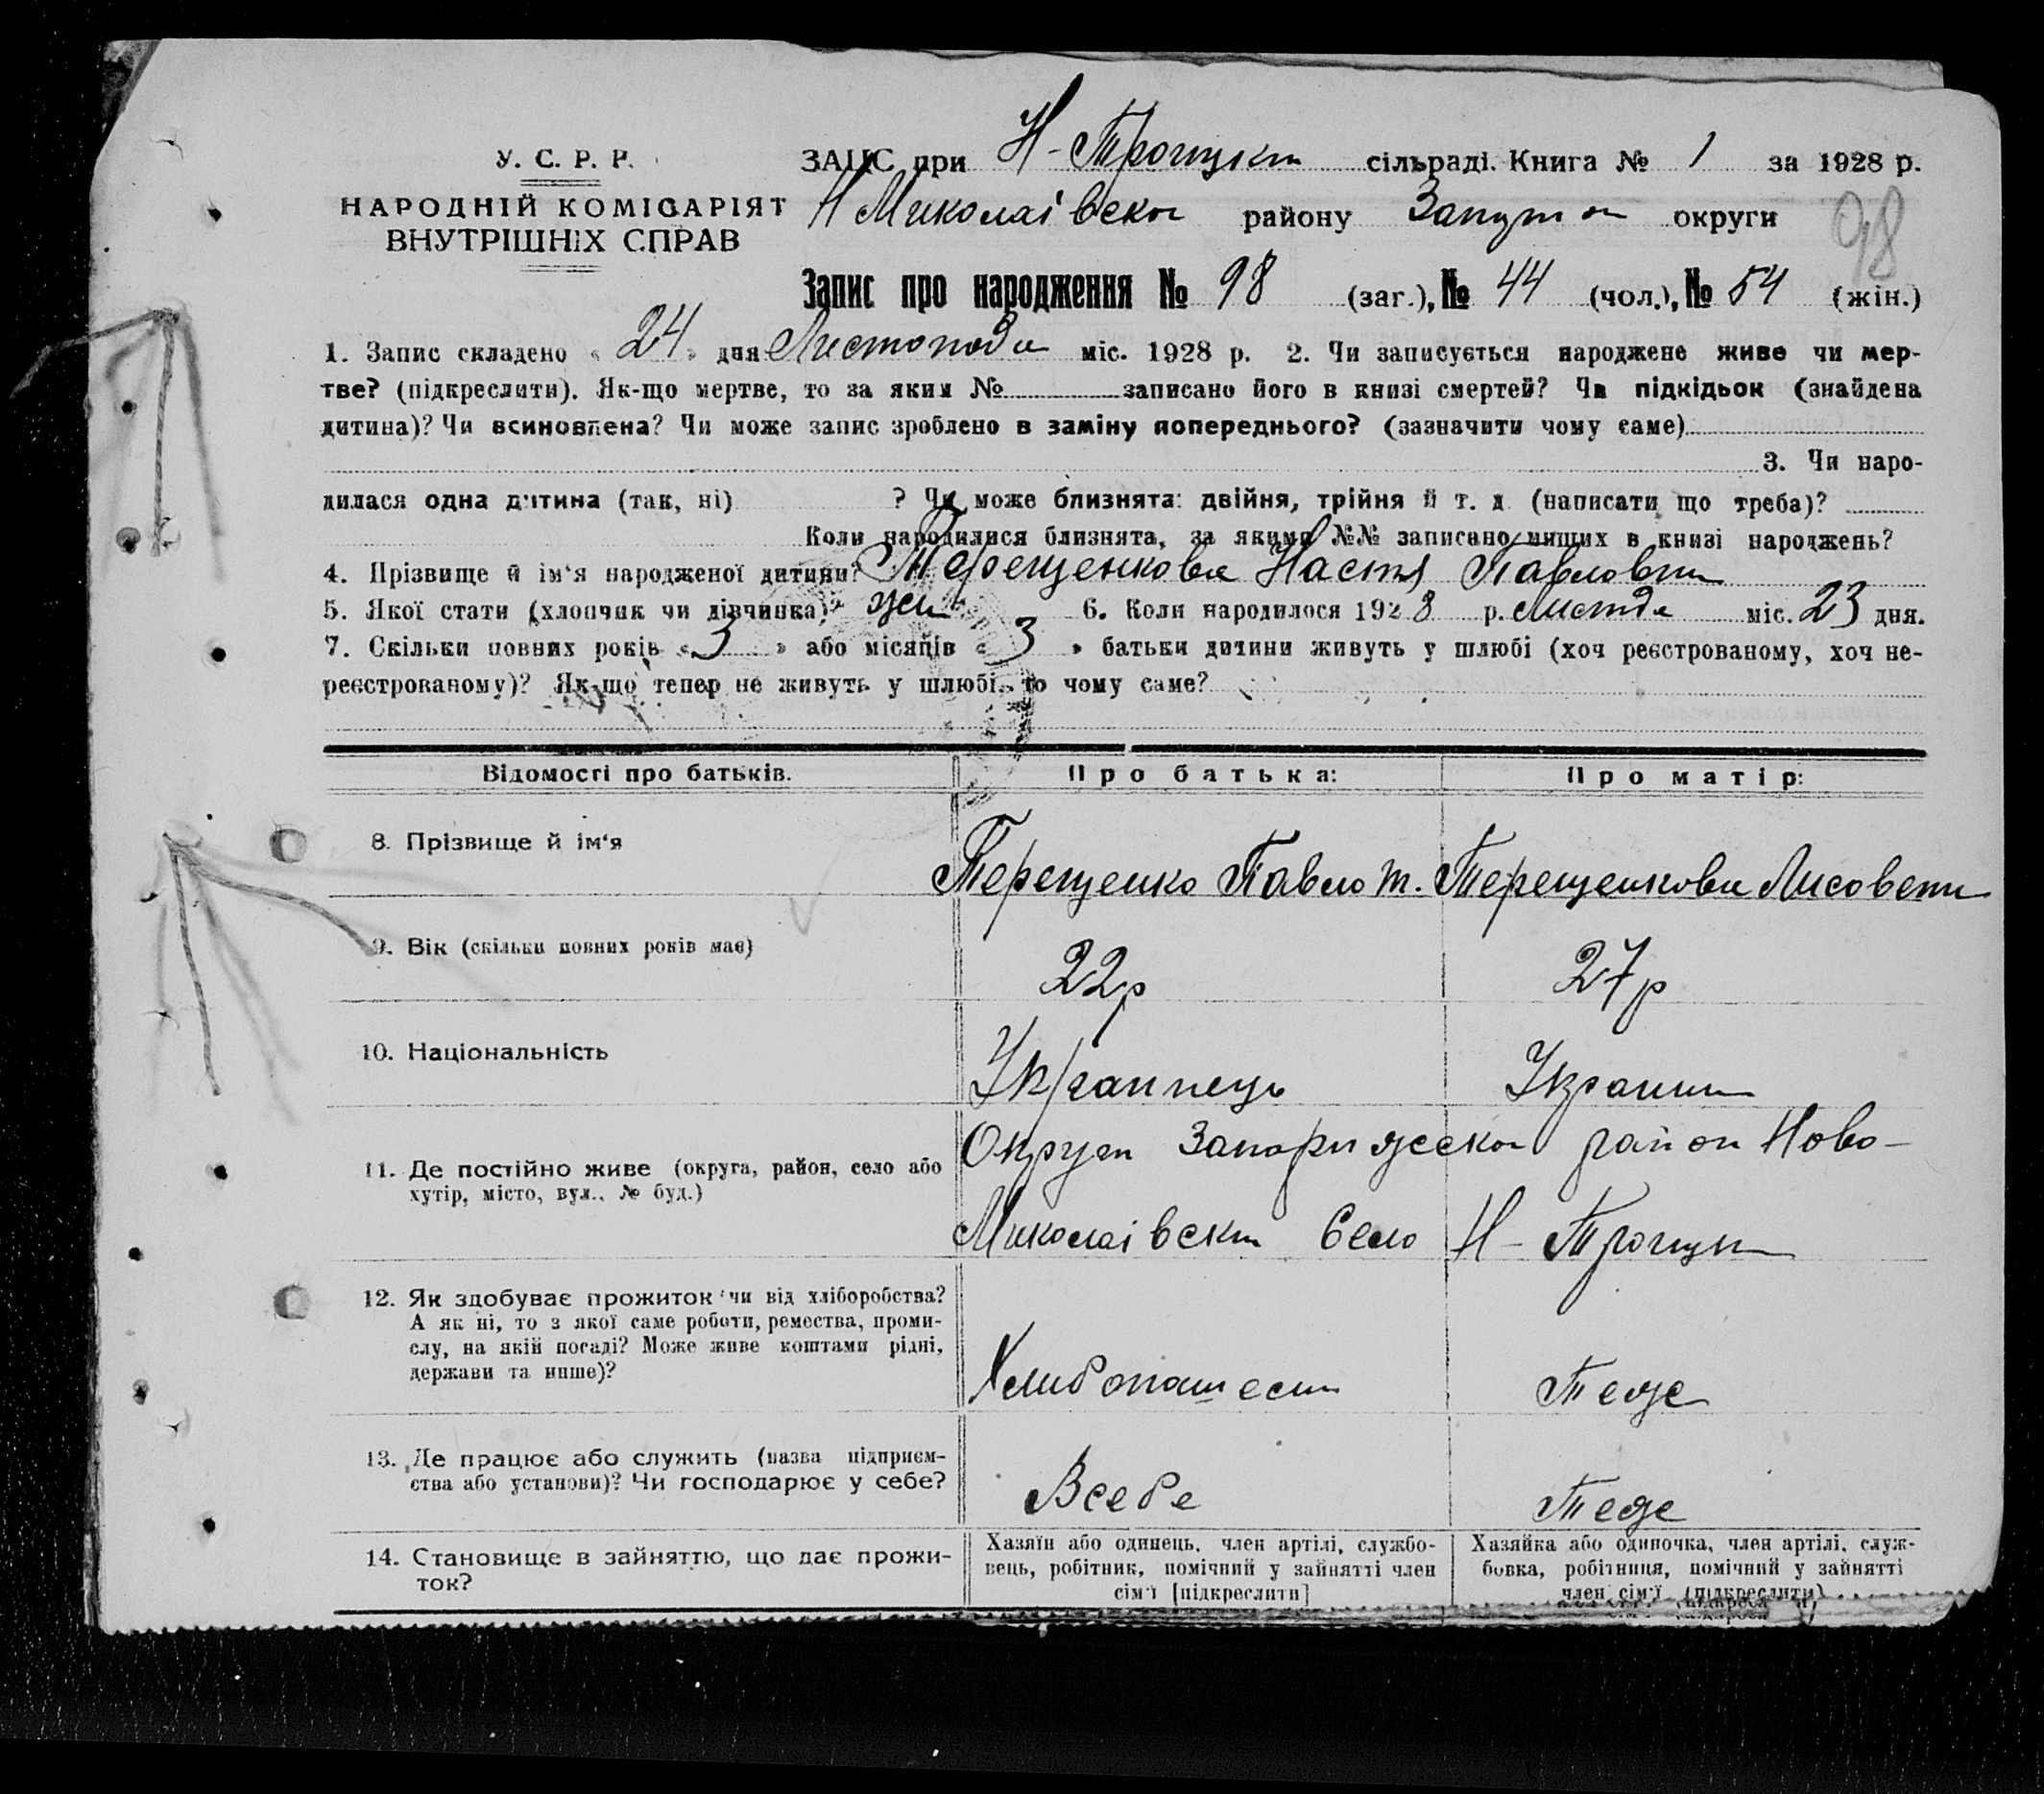 У. С. Р. Р.
НАРОДНІЙ КОМІСАРІЯТ
ВНУТРІШНІХ СПРАВ
ЗАЦС при Н-Троицкт сільраді. Книга № 1 за 1928 р.
Н Миколаівског району округи
98
Запис про народження № 98 (заг.), № 44 (чол.), № 54 (жін.)
1. Запис складено « 24 » дня Листопада міс. 1928 р. 2. Чи записується народжене живе чи мер-
тве? (підкреслити). Як-що мертве, то за яким № записано його в книзі смертей? Чи підкідьок (знайдена
дитина)? Чи всиновлена? Чи може запис зроблено в заміну попереднього? (зазначити чому саме)
3. Чи наро-
дилася одна дитина (так, ні) ? Чи може близнята: двійня, трійня й т. д (написати що треба)?
Коли народилися близнята, за якими №№ записано инших в книзі народжень?
4. Прізвище й ім'я народженої дитини? Терещенкова Настя Павловна
5. Якої стати (хлопчик чи дівчинка) жен 6. Коли народилося 1928 р. Листда міс. 23 дня.
7. Скільки повних років « 3 » або місяців « 3 » батьки дитини живуть у шлюбі (хоч реєстрованому, хоч не-
реєстрованому)? Як-що тепер не живуть у шлюбі, то чому саме?
Відомості про батьків. Про батька: Про матір:
8. Прізвище й ім'я
Терещенко Павло Т. Терещенкова Лисовета
9. Вік (скільки повних років має)
22р 27р
10. Національність
Українець Украин
11. Де постійно живе (округа, район, село або
хутір, місто, вул., № буд.)
Округа район Ново-
Миколаівскт Село Н-Троицк
12. Як здобуває прожиток чи від хліборобства?
А як ні, то з якої саме роботи, ремества, проми-
слу, на якій посаді? Може живе коштами рідні,
держави та инше)?
Теже
13. Де працює або служить (назва підприєм-
ства або установи)? Чи господарює у себе?
Всебе Теже
14. Становище в зайняттю, що дає прожи-
ток?
Хазяїн або одинець, член артілі, службо-
вець, робітник, помічний у зайнятті член
сім'ї [підкреслити]
Хазяйка або одиночка, член артілі, служ-
бовка, робітниця, помічний у зайнятті
член сім'ї (підкреслити)